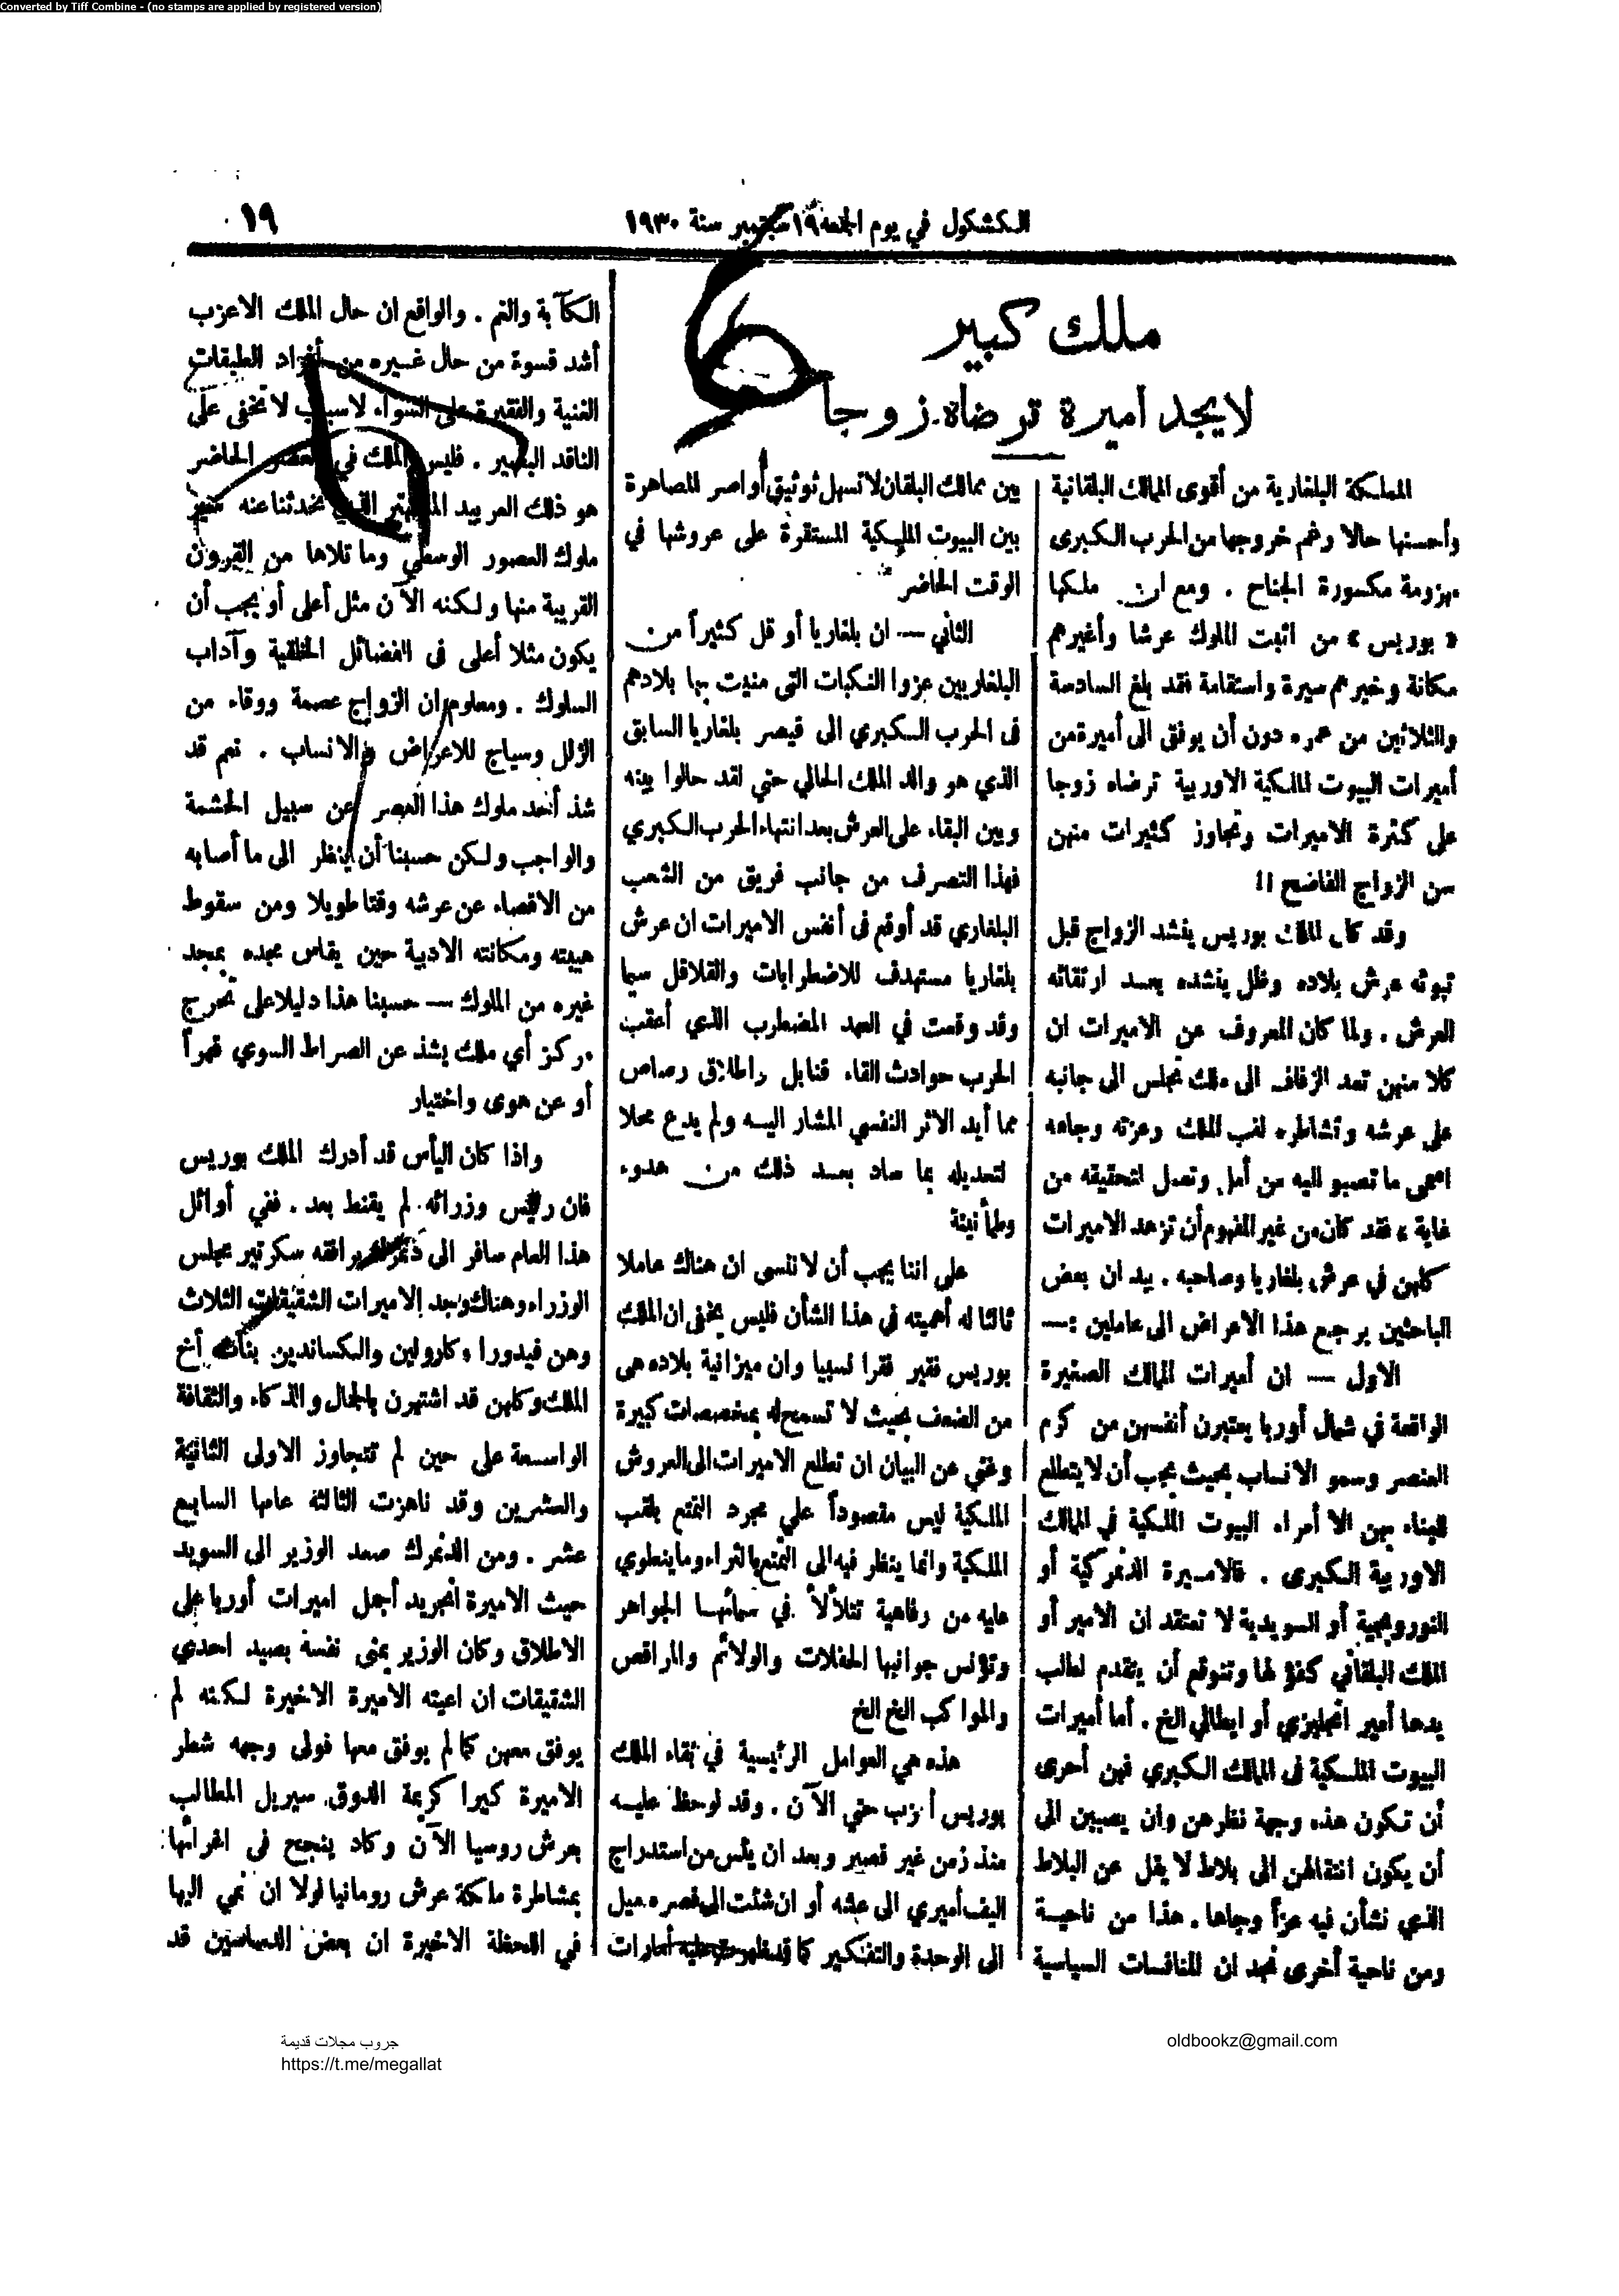 Converted by Tiff Combine - (no stamps are applied by registered version)
الكشكول في يوم الجمعة ١٩ سبتمبر سنة ١٩٣٠
١٩
ملك كبير
لا يجد أميرة ترضاه زوجا
المملكة البلغارية من أقوى الممالك البلقانية
وأحسنها حالا رغم خروجها من الحرب الكبرى
مهزومة مكسورة الجناح . ومع ان ملكها
« بوريس » من اثبت الملوك عرشا وأغيرهم
مكانة وخيرهم سيرة واستقامة فقد بلغ السادسة
والثلاثين من عمره دون أن يوفق الى أميرة من
أميرات البيوت المالكية الاوربية ترضاه زوجا
على كثرة الاميرات وتجاوز كثيرات منهن
سن الزواج الفاضح !!
وقد كان الملك بوريس ينشد الزواج قبل
تبوئه عرش بلاده وظل ينشده بعد ارتقائه
العرش . ولما كان المعروف عن الاميرات ان
كلا منهن تعد الزفاف الى ملك تجلس الى جانبه
على عرشه وتشاطره لقب الملك وعزته وجاهه
اسمى ما تصبو اليه من أمل وتعمل لتحقيقه من
غاية ، فقد كان من غير المفهوم أن تزهد الاميرات
كلهن في عرش بلغاريا وصاحبه . بيد ان بعض
الباحثين يرجع هذا الاعراض الى عاملين : —
الاول — ان أميرات الممالك الصغيرة
الواقعة في شمال أوربا يعتبرن أنفسهن من كرم
العنصر وسمو الانساب بحيث يجب أن لا يتطلع
للبناء بهن الا أمراء البيوت الملكية في الممالك
الاوربية الكبرى . فالاميرة الدنمركية أو
النورويجية أو السويدية لا تعتقد ان الأمير أو
الملك البلقاني كفؤ لها وتتوقع أن يتقدم لطلب
يدها أمير انجليزي أو ايطالي الخ . أما أميرات
البيوت الملكية في الممالك الكبري فهن أحرى
أن تكون هذه وجهة نظرهن وان يصبين الى
أن يكون انتقالهن الى بلاط لا يقل عن البلاط
الذي نشأن فيه عزاً وجاها . هذا من ناحية
ومن ناحية أخرى نجد ان المنافسات السياسية
بين ممالك البلقان لا تسهل توثيق أواصر المصاهرة
بين البيوت الملكية المستقرة على عروشها في
الوقت الحاضر
الثاني — ان بلغاريا أو قل كثيراً من
البلغاريين عزوا النكبات التى منيت بها بلادهم
فى الحرب الكبري الى قيصر بلغاريا السابق
الذي هو والد الملك الحالي حتي لقد حالوا بينه
وبين البقاء على العرش بعد انتهاء الحرب الكبري
فهذا التصرف من جانب فريق من الشعب
البلغاري قد أوقع فى أنفس الاميرات ان عرش
بلغاريا مستهدف للاضطرابات والقلاقل سيما
وقد وقعت في العهد المضطرب الذي أعقب
الحرب حوادث القاء قنابل واطلاق رصاص
مما أيد الاثر النفسي المشار اليه ولم يدع محلا
لتعديله بما ساد بعد ذلك من هدوء
وطمأنينة
على اننا يجب أن لا ننسى ان هناك عاملا
ثالثا له أهميته في هذا الشأن فليس يخفى ان الملك
بوريس فقير فقرا نسبيا وان ميزانية بلاده هى
من الضعف بحيث لا تسمح له بمخصصات كبيرة
وغني عن البيان ان تطلع الاميرات الى العروش
الملكية ليس مقصوداً علي مجرد التمتع بلقب
الملكية وانما ينظر فيه الى التمتع بالثراء وما ينطوي
عليه من رفاهية تتلألأ في سمائها الجواهر
وتؤنس جوانبها الحفلات والولائم والمراقص
والمواكب الخ الخ
هذه هي العوامل الرئيسية في بقاء الملك
بوريس أعزب حتي الآن . وقد لوحظ عليه
منذ زمن غير قصير وبعد ان يئس من استدراج
اليف أميري الى عشه أو ان شئت الى قصره ميل
الى الوحدة والتفكير كما قد ظهرت عليه أمارات
الكآبة والغم . والواقع ان حال الملك الاعزب
أشد قسوة من حال غيره من أفراد الطبقات
الغنية والفقيرة على السواء لاسباب لا تخفى على
الناقد البصير . فليس الملك في العصر الحاضر
هو ذلك العربيد المستهتر الذي تحدثنا عنه سير
ملوك العصور الوسطي وما تلاها من القرون
القريبة منها ولكنه الآن مثل أعلى أو يجب أن
يكون مثلا أعلى فى الفضائل الخلقية وآداب
السلوك . ومعلوم ان الزواج عصمة ووقاء من
الزلل وسياج للاعراض والانساب . نعم قد
شذ أحد ملوك هذا العصر عن سبيل الحشمة
والواجب ولكن حسبنا أن ينظر الى ما أصابه
من الاقصاء عن عرشه وقتا طويلا ومن سقوط
هيبته ومكانته الادبية حين يقاس مجده بمجد
غيره من الملوك — حسبنا هذا دليلا على تحرج
مركز أي ملك يشذ عن الصراط السوي قهراً
أو عن هوى واختيار
واذا كان اليأس قد أدرك الملك بوريس
فان رئيس وزرائه لم يقنط بعد . ففي أوائل
هذا العام سافر الى دنمرك يرافقه سكرتير مجلس
الوزراء وهناك وجد الاميرات الشقيقات الثلاث
وهن فيدورا وكارولين والكساندين بنات أخ
الملك وكلهن قد اشتهرن بالجمال والذكاء والثقافة
الواسعة على حين لم تتجاوز الاولى الثانية
والعشرين وقد ناهزت الثالثة عامها السابع
عشر . ومن الدنمرك صعد الوزير الى السويد
حيث الاميرة انجريد أجمل اميرات أوربا على
الاطلاق وكان الوزير يمنى نفسه بصيد احدي
الشقيقات ان اعيته الاميرة الاخيرة لكنه لم
يوفق معهن كما لم يوفق معها فولى وجهه شطر
الاميرة كيرا كريمة الدوق سيريل المطالب
بعرش روسيا الآن وكاد ينجح فى اغرائها
بمشاطرة ملكه عرش رومانيا لولا ان نمي اليها
في اللحظة الاخيرة ان بعض الدساسين قد
جروب مجلات قديمة
https://t.me/megallat
oldbookz@gmail.com